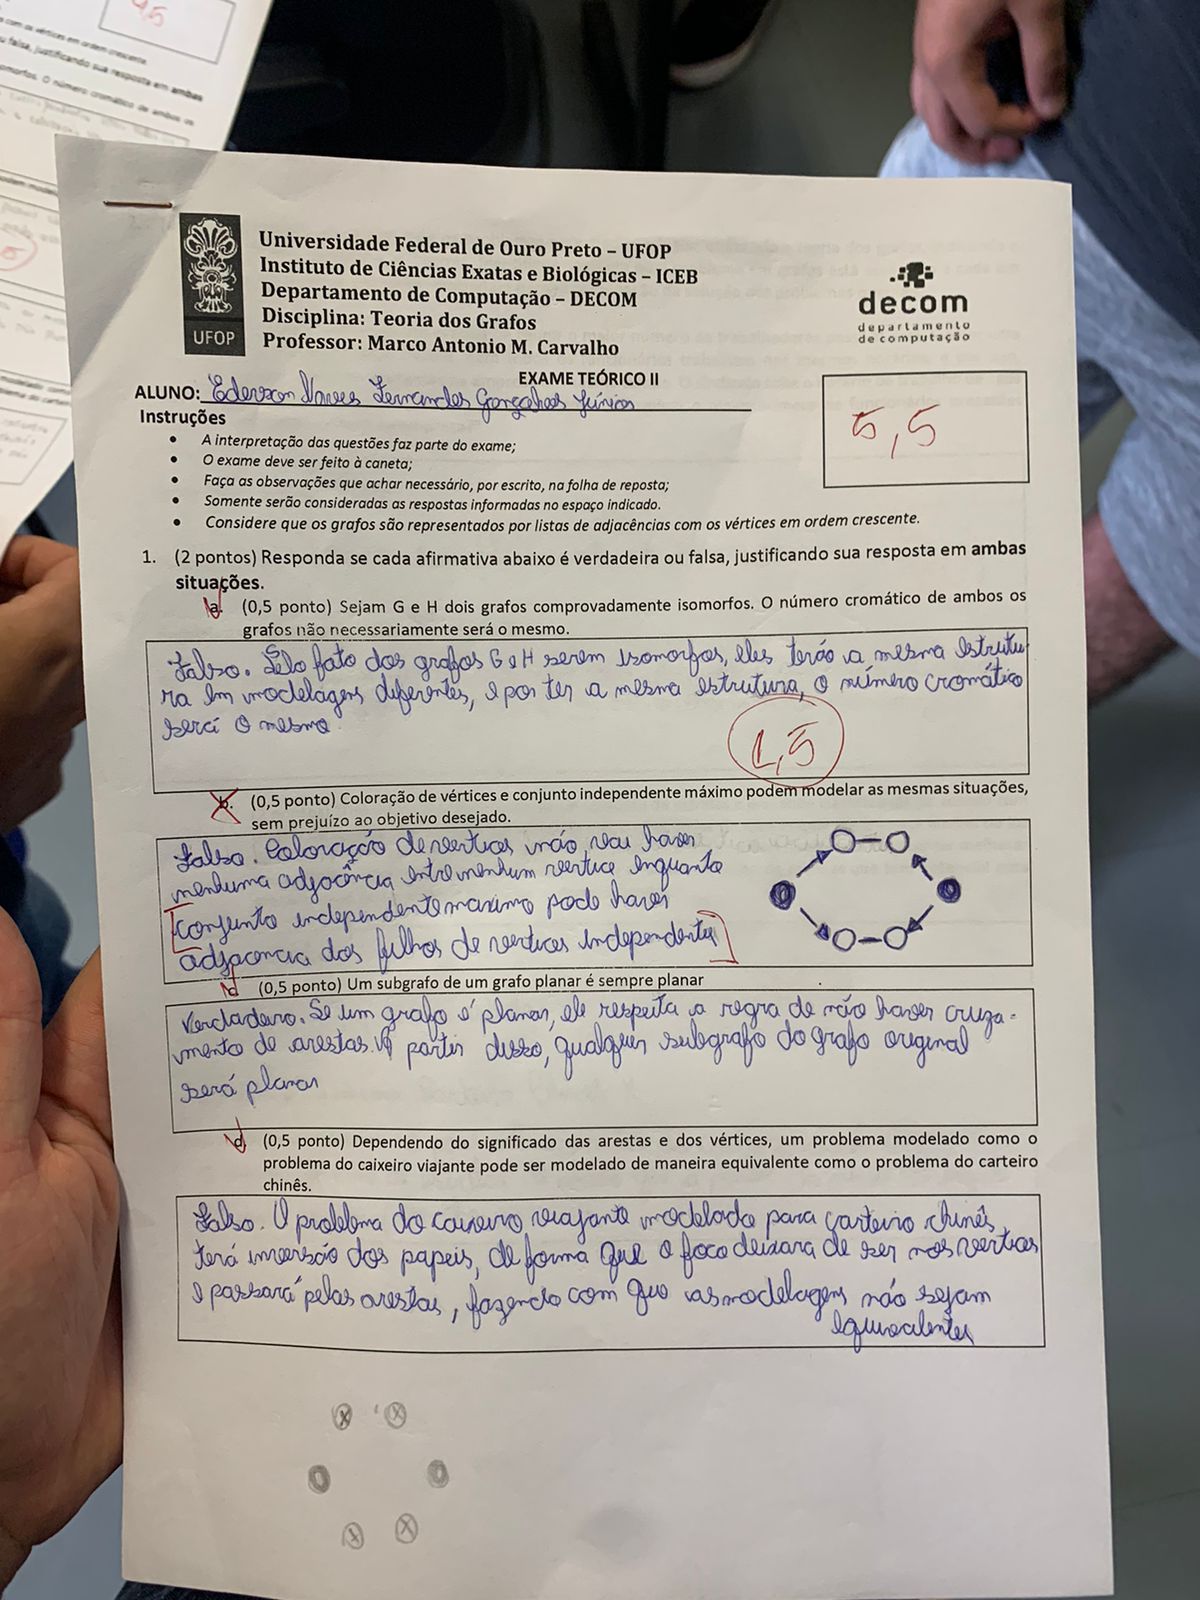 4,5
com os vértices em ordem crescente.
falsa, justificando sua resposta em ambas
O número cromático de ambos os
Universidade Federal de Ouro Preto – UFOP
Instituto de Ciências Exatas e Biológicas – ICEB
Departamento de Computação – DECOM
Disciplina: Teoria dos Grafos
Professor: Marco Antonio M. Carvalho
UFOP
decom
departamento
de computação
EXAME TEÓRICO II
ALUNO: Ederson Naves Fernandes Gonçalves Júnior
5,5
Instruções
• A interpretação das questões faz parte do exame;
• O exame deve ser feito à caneta;
• Faça as observações que achar necessário, por escrito, na folha de reposta;
• Somente serão consideradas as respostas informadas no espaço indicado.
• Considere que os grafos são representados por listas de adjacências com os vértices em ordem crescente.
1. (2 pontos) Responda se cada afirmativa abaixo é verdadeira ou falsa, justificando sua resposta em ambas
situações.
a. (0,5 ponto) Sejam G e H dois grafos comprovadamente isomorfos. O número cromático de ambos os
grafos não necessariamente será o mesmo.
Falso. Pelo fato dos grafos G e H serem isomorfos, eles terão a mesma estrutu
ra em modelagens diferentes, e por ter a mesma estrutura, o número cromático
será o mesmo.
1,5
b. (0,5 ponto) Coloração de vértices e conjunto independente máximo podem modelar as mesmas situações,
sem prejuízo ao objetivo desejado.
Falso. Coloração de vertices não vai haver
nenhuma adjacência entre nenhum vertice enquanto
conjunto independente maximo pode haver
adjacencia dos filhos de vertices independentes
c. (0,5 ponto) Um subgrafo de um grafo planar é sempre planar
Verdadeiro. Se um grafo é planar, ele respeita a regra de não haver cruza-
mento de arestas. A partir disso, qualquer subgrafo do grafo original
será planar
d. (0,5 ponto) Dependendo do significado das arestas e dos vértices, um problema modelado como o
problema do caixeiro viajante pode ser modelado de maneira equivalente como o problema do carteiro
chinês.
Falso. O problema do caixeiro viajante modelado para carteiro chinês
terá inversão dos papeis, de forma que o foco deixara de ser nos vertices
e passará pelas arestas, fazendo com que as modelagens não sejam
equivalentes